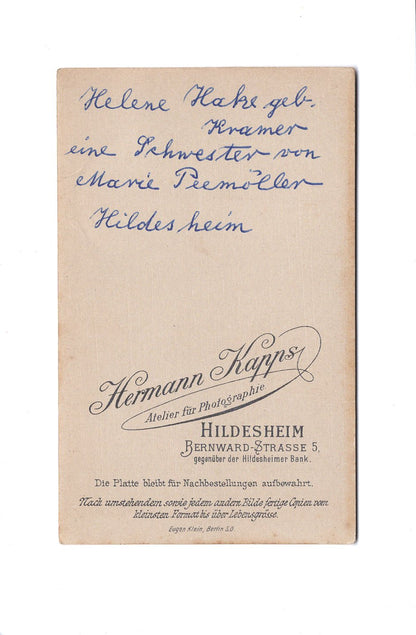 Helene Hake geb.
Kramer
eine Schwester von
Marie Peemöller
Hildesheim
Hermann Kapps
Atelier für Photographie
HILDESHEIM
BERNWARD-STRASSE 5,
gegenüber der Hildesheimer Bank.
Die Platte bleibt für Nachbestellungen aufbewahrt.
Nach umstehendem sowie jedem andern Bilde fertige Copien vom
kleinsten Format bis über Lebensgrösse.
Eugen Klein, Berlin S.O.